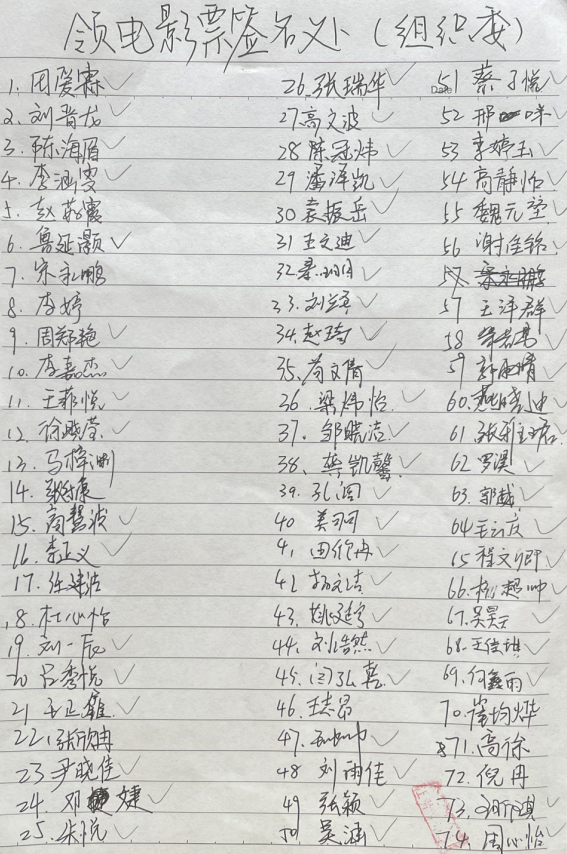 领电影票签名处（组织委）
1. 田爱霖
2. 刘晋龙
3. 陈海眉
4. 李涵雯
5. 赵霞
6. 鲁延灏
7. 宋永鹏
8. 李婷
9. 周郑艳
10. 李嘉杰
11. 王菲悦
12. 徐晓莹
13. 马梓淵
14. 张康
15. 高慧波
16. 秦正义
17. 洁
18. 杜心怡
19. 刘一辰
20 吕秀悦
21 王正雄
22. 张欣冉
23 尹晓佳
24. 邓婕
25. 朱悦
26. 张瑞华
27 高文波
28 陈冠炜
29 潘泽凯
30 袁振岳
31 王文迪
32 明月
33. 刘
34. 赵琦
35. 苟文倩
36. 梁炜怡
37. 邹晓洁
38. 龚凯馨
39. 孔阁
40 美可
41 田冉
42 杨文洁
43. 宇
44. 刘浩然
45. 闫弘嘉
46. 王志昂
47. 帅
48 刘雨佳
49 张颖
50 吴涵
51 蔡子悦
52 邢咪
53 李婷玉
54 高静怡
55 魏元堃
56 谢佳铭
57 宋永鹏
57 王泽群
58
59 晴
60. 燕晓迪
61. 张君
62 罗淏
63. 郭越
64 王云庆
65 程文卿
66. 杨超帅
67. 吴昊
68. 王佳琪
69. 何鑫雨
70. 崔均烨
71. 高徐
72. 倪冉
73. 琪
74. 周心怡